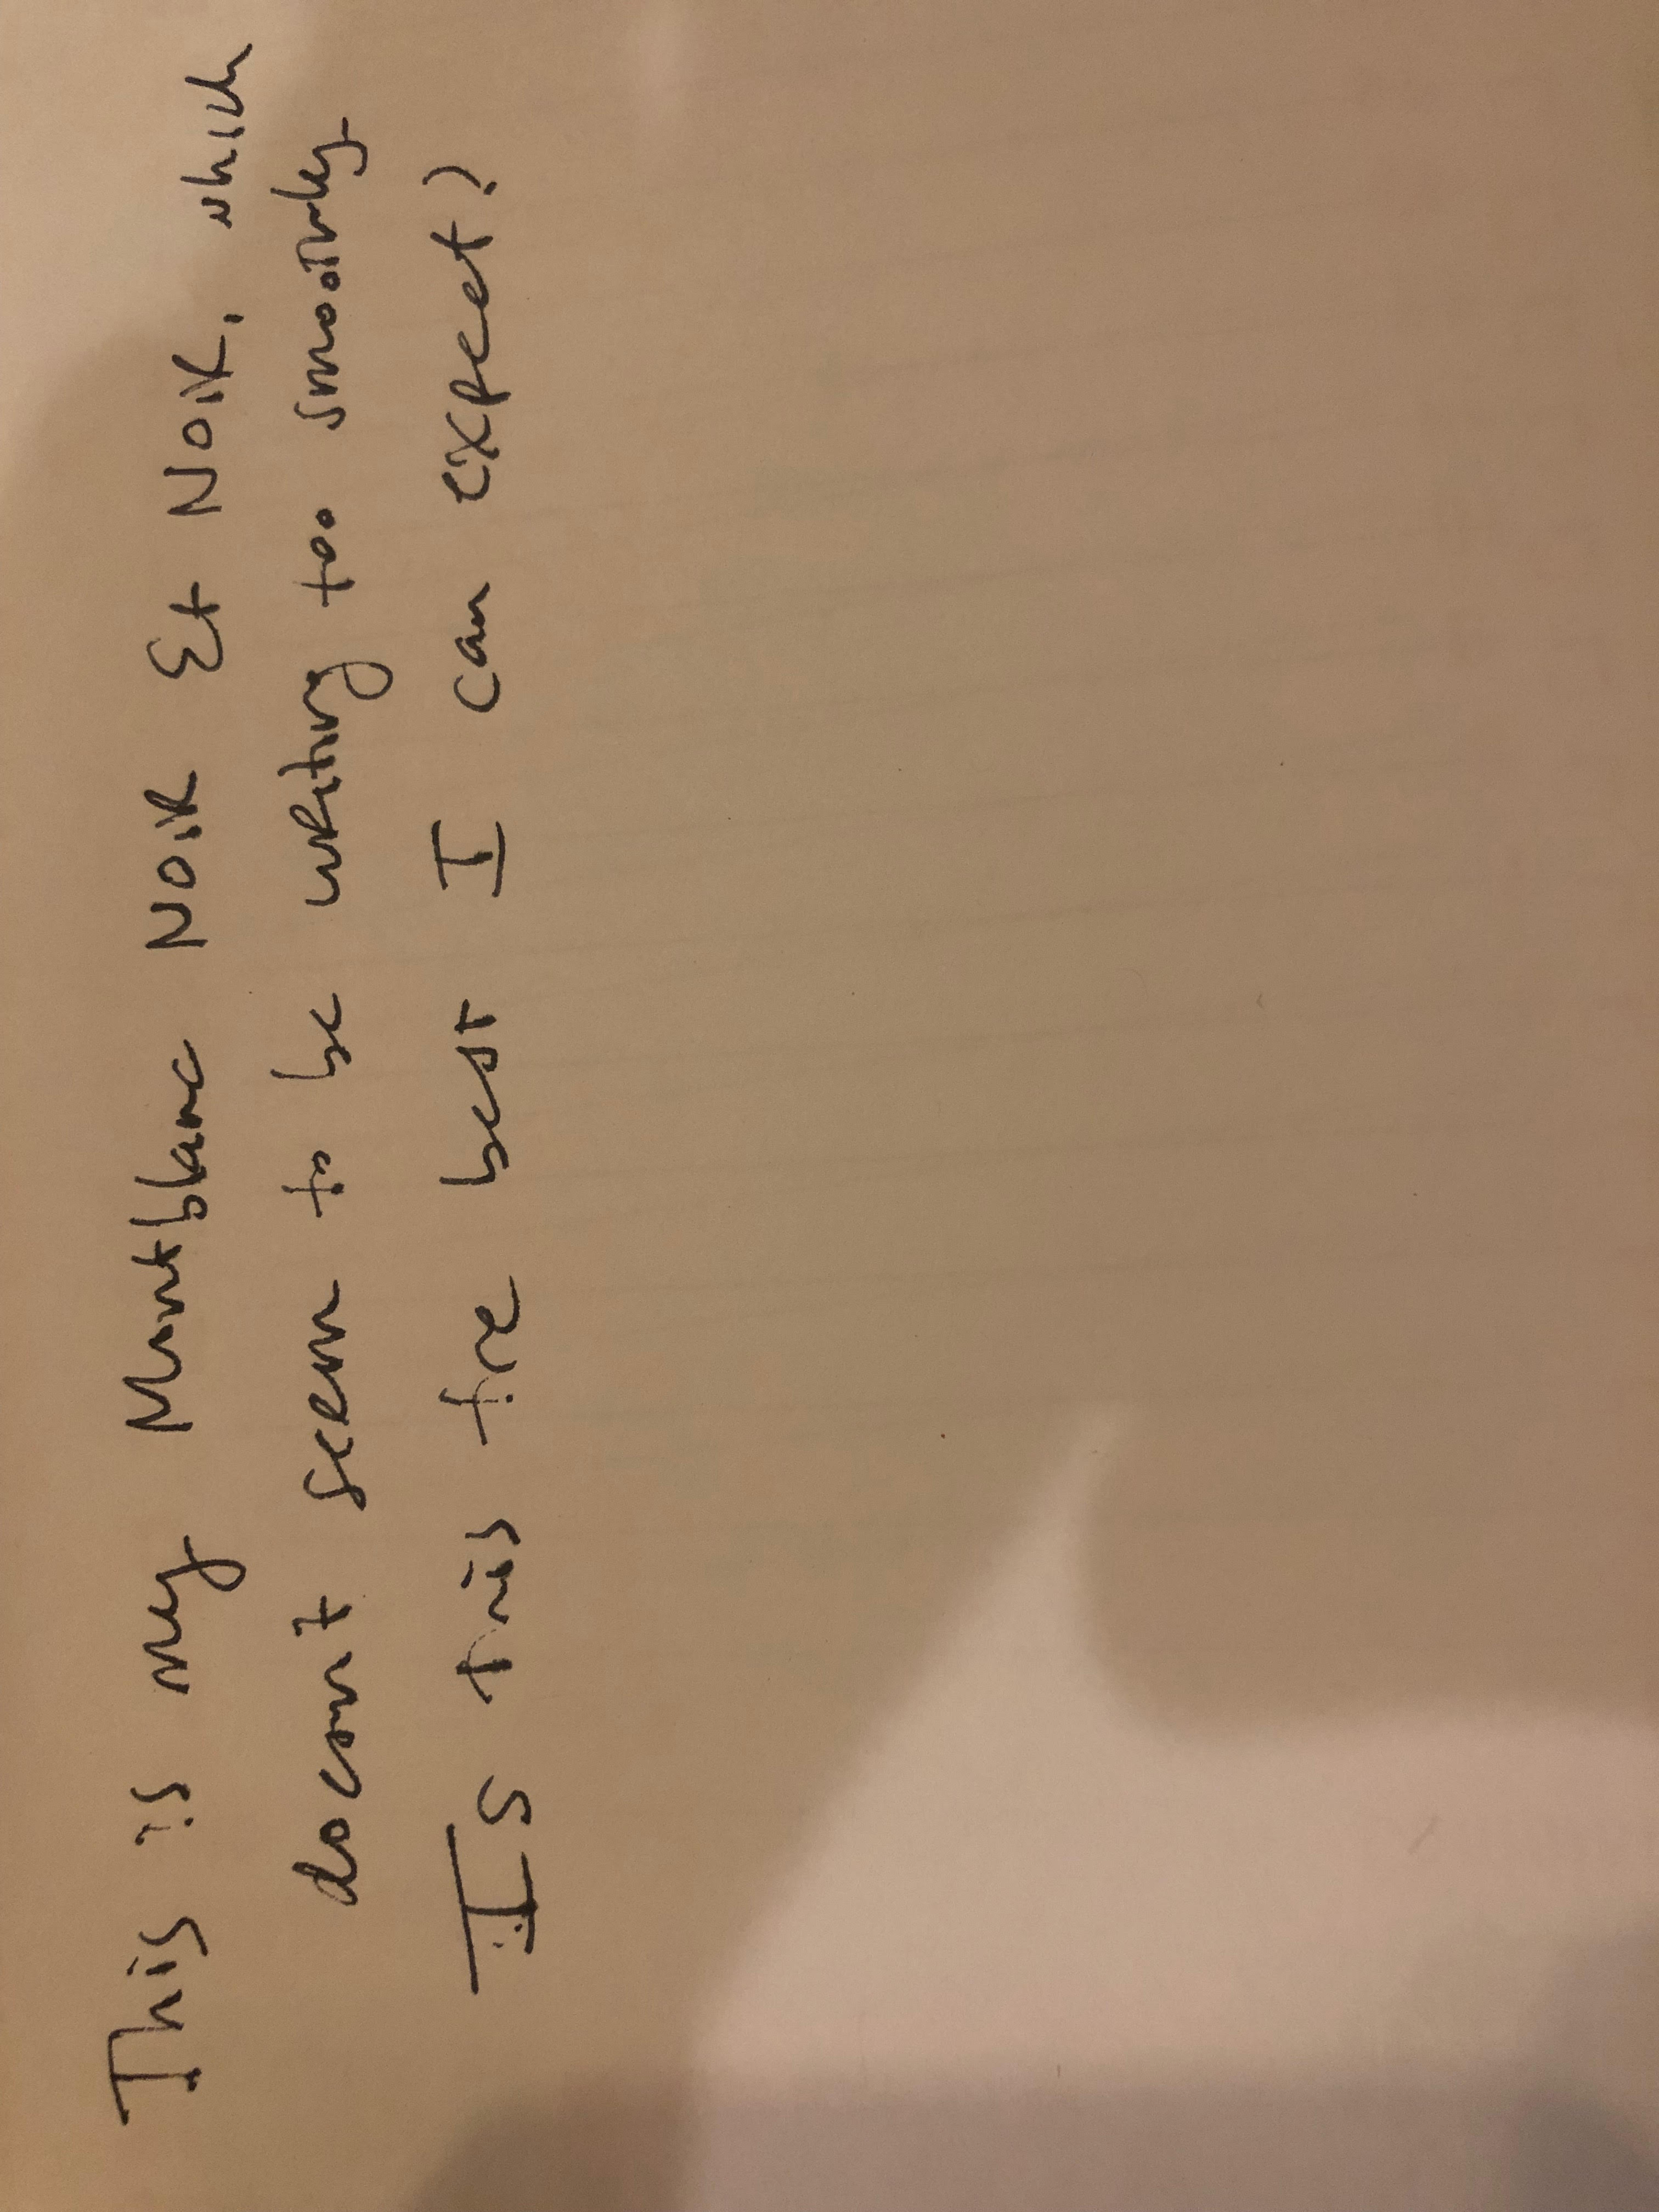 This is my Montblanc Noir Et Noir, which
doesn't seem to be writing too smoothly.
Is this the best I can expect?